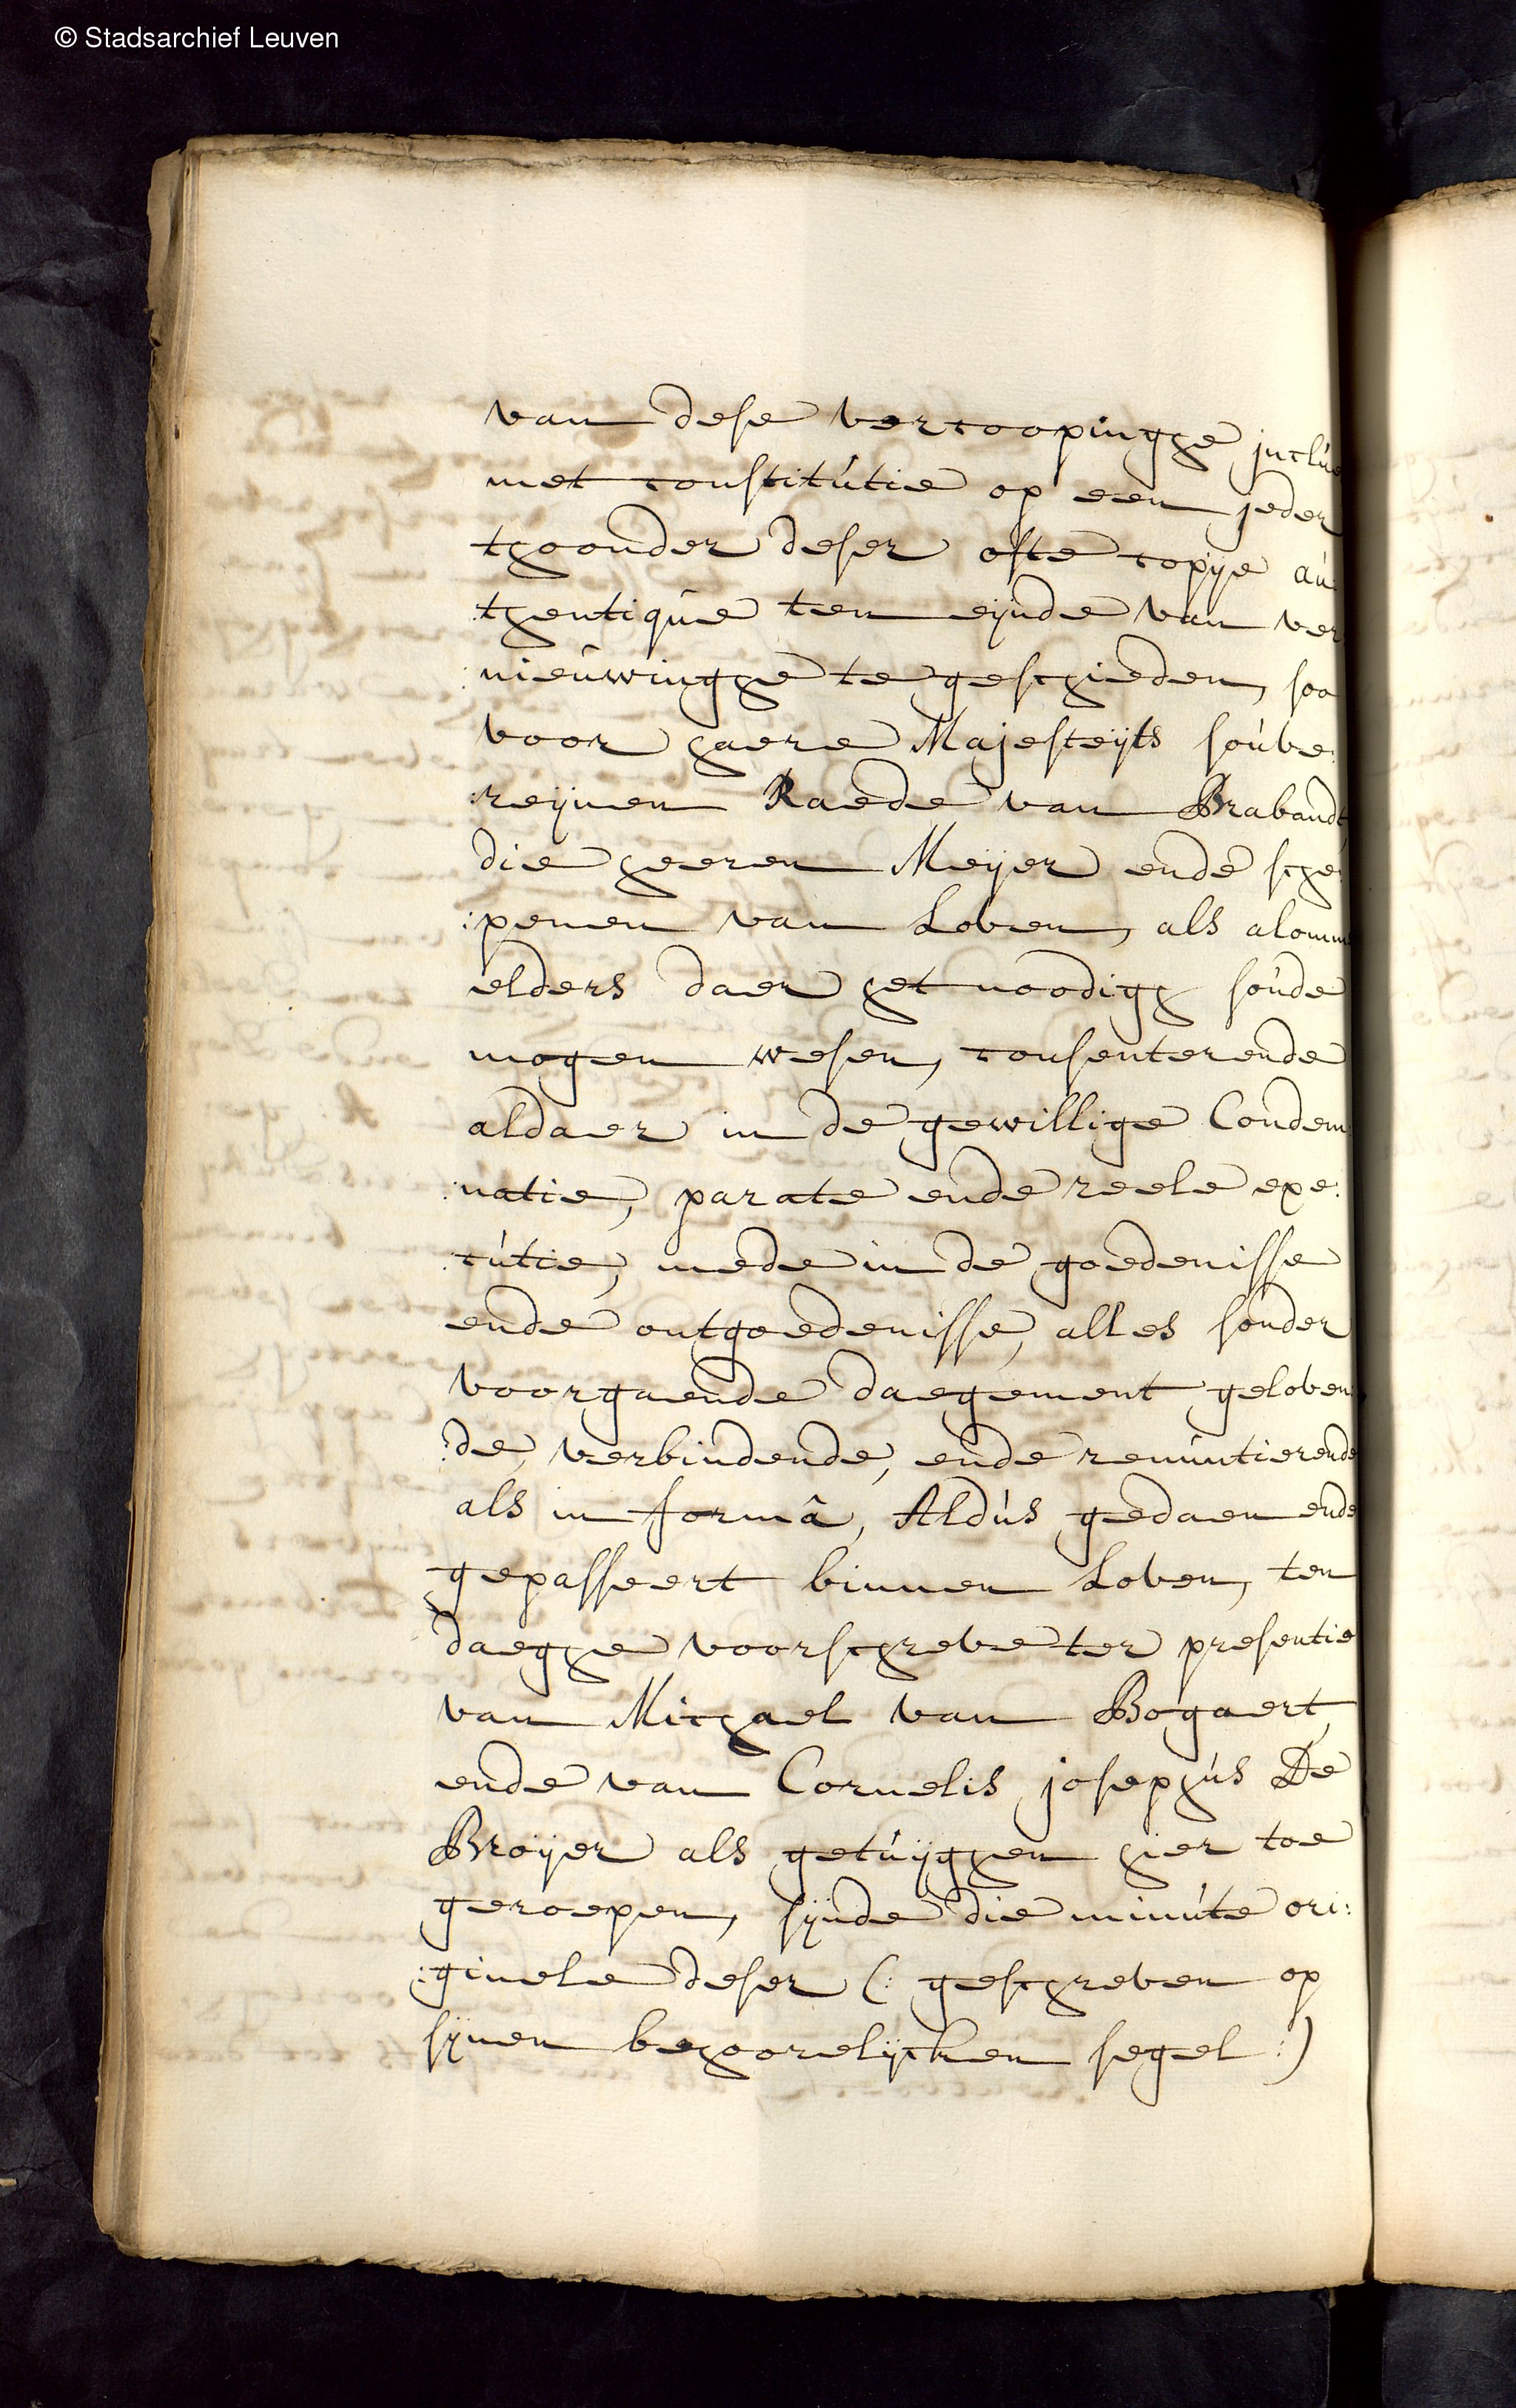 © Stadsarchief Leuven
van dese vercoopingge jnclúe
met constitútie op een jeder
thoonder deser ofte copije aú:
:thentiqúe ten eijnde van ver
:nieúwinghe te geschieden, soo
voor haere Majesteijts soúve:
:reijnen Raede van Brabandt,
die heeren Meijer ende sche:
:penen van Loven, als alomme
elders daer het noodigh soúde
mogen wesen, consenterende
aldaer in de gewillige Condem
:natie, parate ende reele exe:
:cútie, mede in de goedenisse
ende ontgoedenisse, alles sonder
voorgaende daegement geloven,
:de, verbindende, ende renúntierende
als in formâ, Aldús gedaen ende
gepasseert binnen Loven, ten
daeghe voorschreve ter presentie
van Michael van Bogaert,
ende van Cornelis josephús De
Broijer als getúijghen hier toe
geroepen, sijnde die minúte ori:
:ginele deser (: geschreven op
sijnen behoorelijcken segel :)